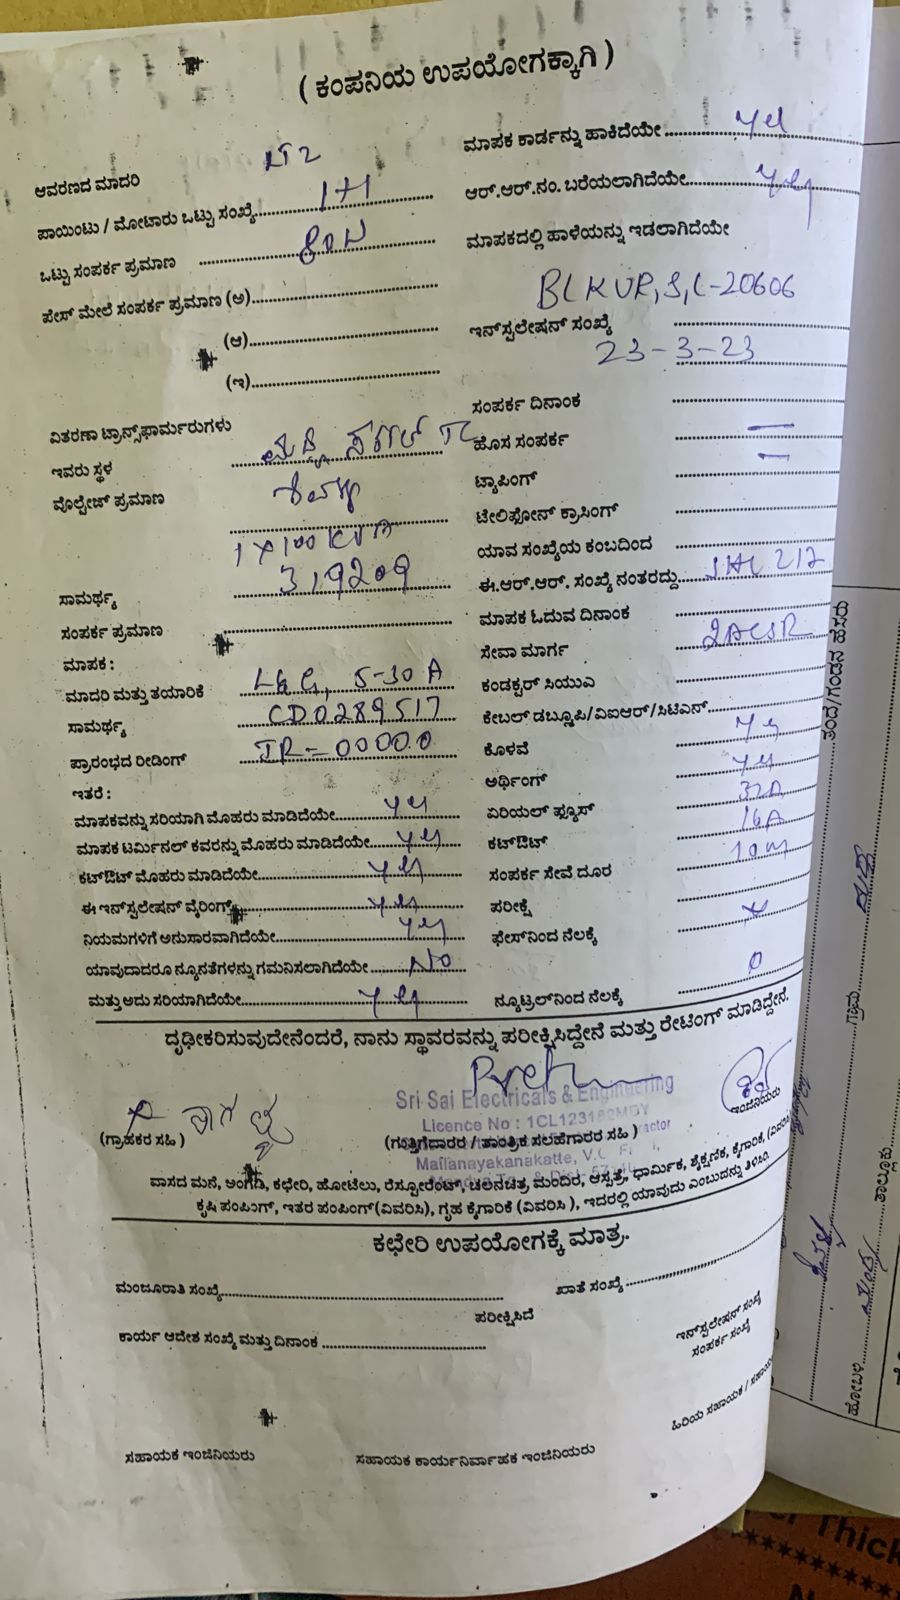 ( ಕಂಪನಿಯ ಉಪಯೋಗಕ್ಕಾಗಿ )
ಆವರಣದ ಮಾದರಿ LT2
ಪಾಯಿಂಟು / ಮೋಟಾರು ಒಟ್ಟು ಸಂಖ್ಯೆ
ಒಟ್ಟು ಸಂಪರ್ಕ ಪ್ರಮಾಣ 80W
ಪೇಸ್ ಮೇಲೆ ಸಂಪರ್ಕ ಪ್ರಮಾಣ (ಅ)
(ಆ)
(ಇ)
ವಿತರಣಾ ಟ್ರಾನ್ಸ್‌ಫಾರ್ಮರುಗಳು
ಇವರು ಸ್ಥಳ
ವೋಲ್ಟೇಜ್ ಪ್ರಮಾಣ
1x100 KVA
ಸಾಮರ್ಥ್ಯ 319209
ಸಂಪರ್ಕ ಪ್ರಮಾಣ
ಮಾಪಕ :
ಮಾದರಿ ಮತ್ತು ತಯಾರಿಕೆ L&G, 5-30 A
ಸಾಮರ್ಥ್ಯ CD0289517
ಪ್ರಾರಂಭದ ರೀಡಿಂಗ್ IR=00000.0
ಇತರೆ :
ಮಾಪಕವನ್ನು ಸರಿಯಾಗಿ ಮೊಹರು ಮಾಡಿದೆಯೇ yes
ಮಾಪಕ ಟರ್ಮಿನಲ್ ಕವರನ್ನು ಮೊಹರು ಮಾಡಿದೆಯೇ yes
ಕಟ್‌ಔಟ್ ಮೊಹರು ಮಾಡಿದೆಯೇ yes
ಈ ಇನ್‌ಸ್ಟಲೇಷನ್ ವೈರಿಂಗ್ yes
ನಿಯಮಗಳಿಗೆ ಅನುಸಾರವಾಗಿದೆಯೇ yes
ಯಾವುದಾದರೂ ನ್ಯೂನತೆಗಳನ್ನು ಗಮನಿಸಲಾಗಿದೆಯೇ No
ಮತ್ತು ಅದು ಸರಿಯಾಗಿದೆಯೇ yes
ಮಾಪಕ ಕಾರ್ಡನ್ನು ಹಾಕಿದೆಯೇ yes
ಆರ್.ಆರ್.ನಂ. ಬರೆಯಲಾಗಿದೆಯೇ yes
ಮಾಪಕದಲ್ಲಿ ಹಾಳೆಯನ್ನು ಇಡಲಾಗಿದೆಯೇ
BLKVP, S, L-20606
ಇನ್‌ಸ್ಟಲೇಷನ್ ಸಂಖ್ಯೆ
23-3-23
ಸಂಪರ್ಕ ದಿನಾಂಕ
ಹೊಸ ಸಂಪರ್ಕ
ಟ್ಯಾಪಿಂಗ್
ಟೇಲಿಫೋನ್ ಕ್ರಾಸಿಂಗ್
ಯಾವ ಸಂಖ್ಯೆಯ ಕಂಬದಿಂದ
ಈ.ಆರ್.ಆರ್. ಸಂಖ್ಯೆ ನಂತರದ್ದು
ಮಾಪಕ ಓದುವ ದಿನಾಂಕ
ಸೇವಾ ಮಾರ್ಗ 2ACSR
ಕಂಡಕ್ಟರ್ ಸಿಯುಎ
ಕೇಬಲ್ ಡಬ್ಲೂಪಿ/ವಿಐಆರ್/ಸಿಟಿಎನ್
ಕೊಳವೆ yes
ಅರ್ಥಿಂಗ್ yes
ಏರಿಯಲ್ ಫ್ಯೂಸ್ 32A
ಕಟ್‌ಔಟ್ 16A
ಸಂಪರ್ಕ ಸೇವೆ ದೂರ 10m
ಪರೀಕ್ಷೆ
ಫೇಸ್‌ನಿಂದ ನೆಲಕ್ಕೆ
ನ್ಯೂಟ್ರಲ್‌ನಿಂದ ನೆಲಕ್ಕೆ 0
ದೃಢೀಕರಿಸುವುದೇನೆಂದರೆ, ನಾನು ಸ್ಥಾವರವನ್ನು ಪರೀಕ್ಷಿಸಿದ್ದೇನೆ ಮತ್ತು ರೇಟಿಂಗ್ ಮಾಡಿದ್ದೇನೆ.
Sri Sai Electricals & Engineering
Licence No : 1CL123182MDY
(ಗ್ರಾಹಕರ ಸಹಿ) (ಗುತ್ತಿಗೆದಾರರ / ತಾಂತ್ರಿಕ ಸಲಹೆಗಾರರ ಸಹಿ) ಇಂಜಿನಿಯರು
ವಾಸದ ಮನೆ, ಅಂಗಡಿ, ಕಛೇರಿ, ಹೋಟೆಲು, ರೆಸ್ಟೋರೆಂಟ್, ಚಲನಚಿತ್ರ ಮಂದಿರ, ಆಸ್ಪತ್ರೆ, ಧಾರ್ಮಿಕ, ಶೈಕ್ಷಣಿಕ, ಕೈಗಾರಿಕೆ, (ವಿವರಿಸಿ)
ಕೃಷಿ ಪಂಪಿಂಗ್, ಇತರ ಪಂಪಿಂಗ್(ವಿವರಿಸಿ), ಗೃಹ ಕೈಗಾರಿಕೆ (ವಿವರಿಸಿ ), ಇದರಲ್ಲಿ ಯಾವುದು ಎಂಬುದನ್ನು ತಿಳಿಸಿ.
ಕಛೇರಿ ಉಪಯೋಗಕ್ಕೆ ಮಾತ್ರ.
ಮಂಜೂರಾತಿ ಸಂಖ್ಯೆ ಖಾತೆ ಸಂಖ್ಯೆ
ಪರೀಕ್ಷಿಸಿದೆ
ಕಾರ್ಯ ಆದೇಶ ಸಂಖ್ಯೆ ಮತ್ತು ದಿನಾಂಕ
ಇನ್‌ಸ್ಟಲೇಷನ್ ಸಂಖ್ಯೆ
ಸಂಪರ್ಕ ಸಂಖ್ಯೆ
ಹಿರಿಯ ಸಹಾಯಕ /
ಸಹಾಯಕ ಇಂಜಿನಿಯರು ಸಹಾಯಕ ಕಾರ್ಯನಿರ್ವಾಹಕ ಇಂಜಿನಿಯರು
ತಂದೆ/ಗಂಡನ ಹೆಸರು
ಗ್ರಾಮ
ತಾಲ್ಲೂಕು
ಹೋಬಳಿ
Thick